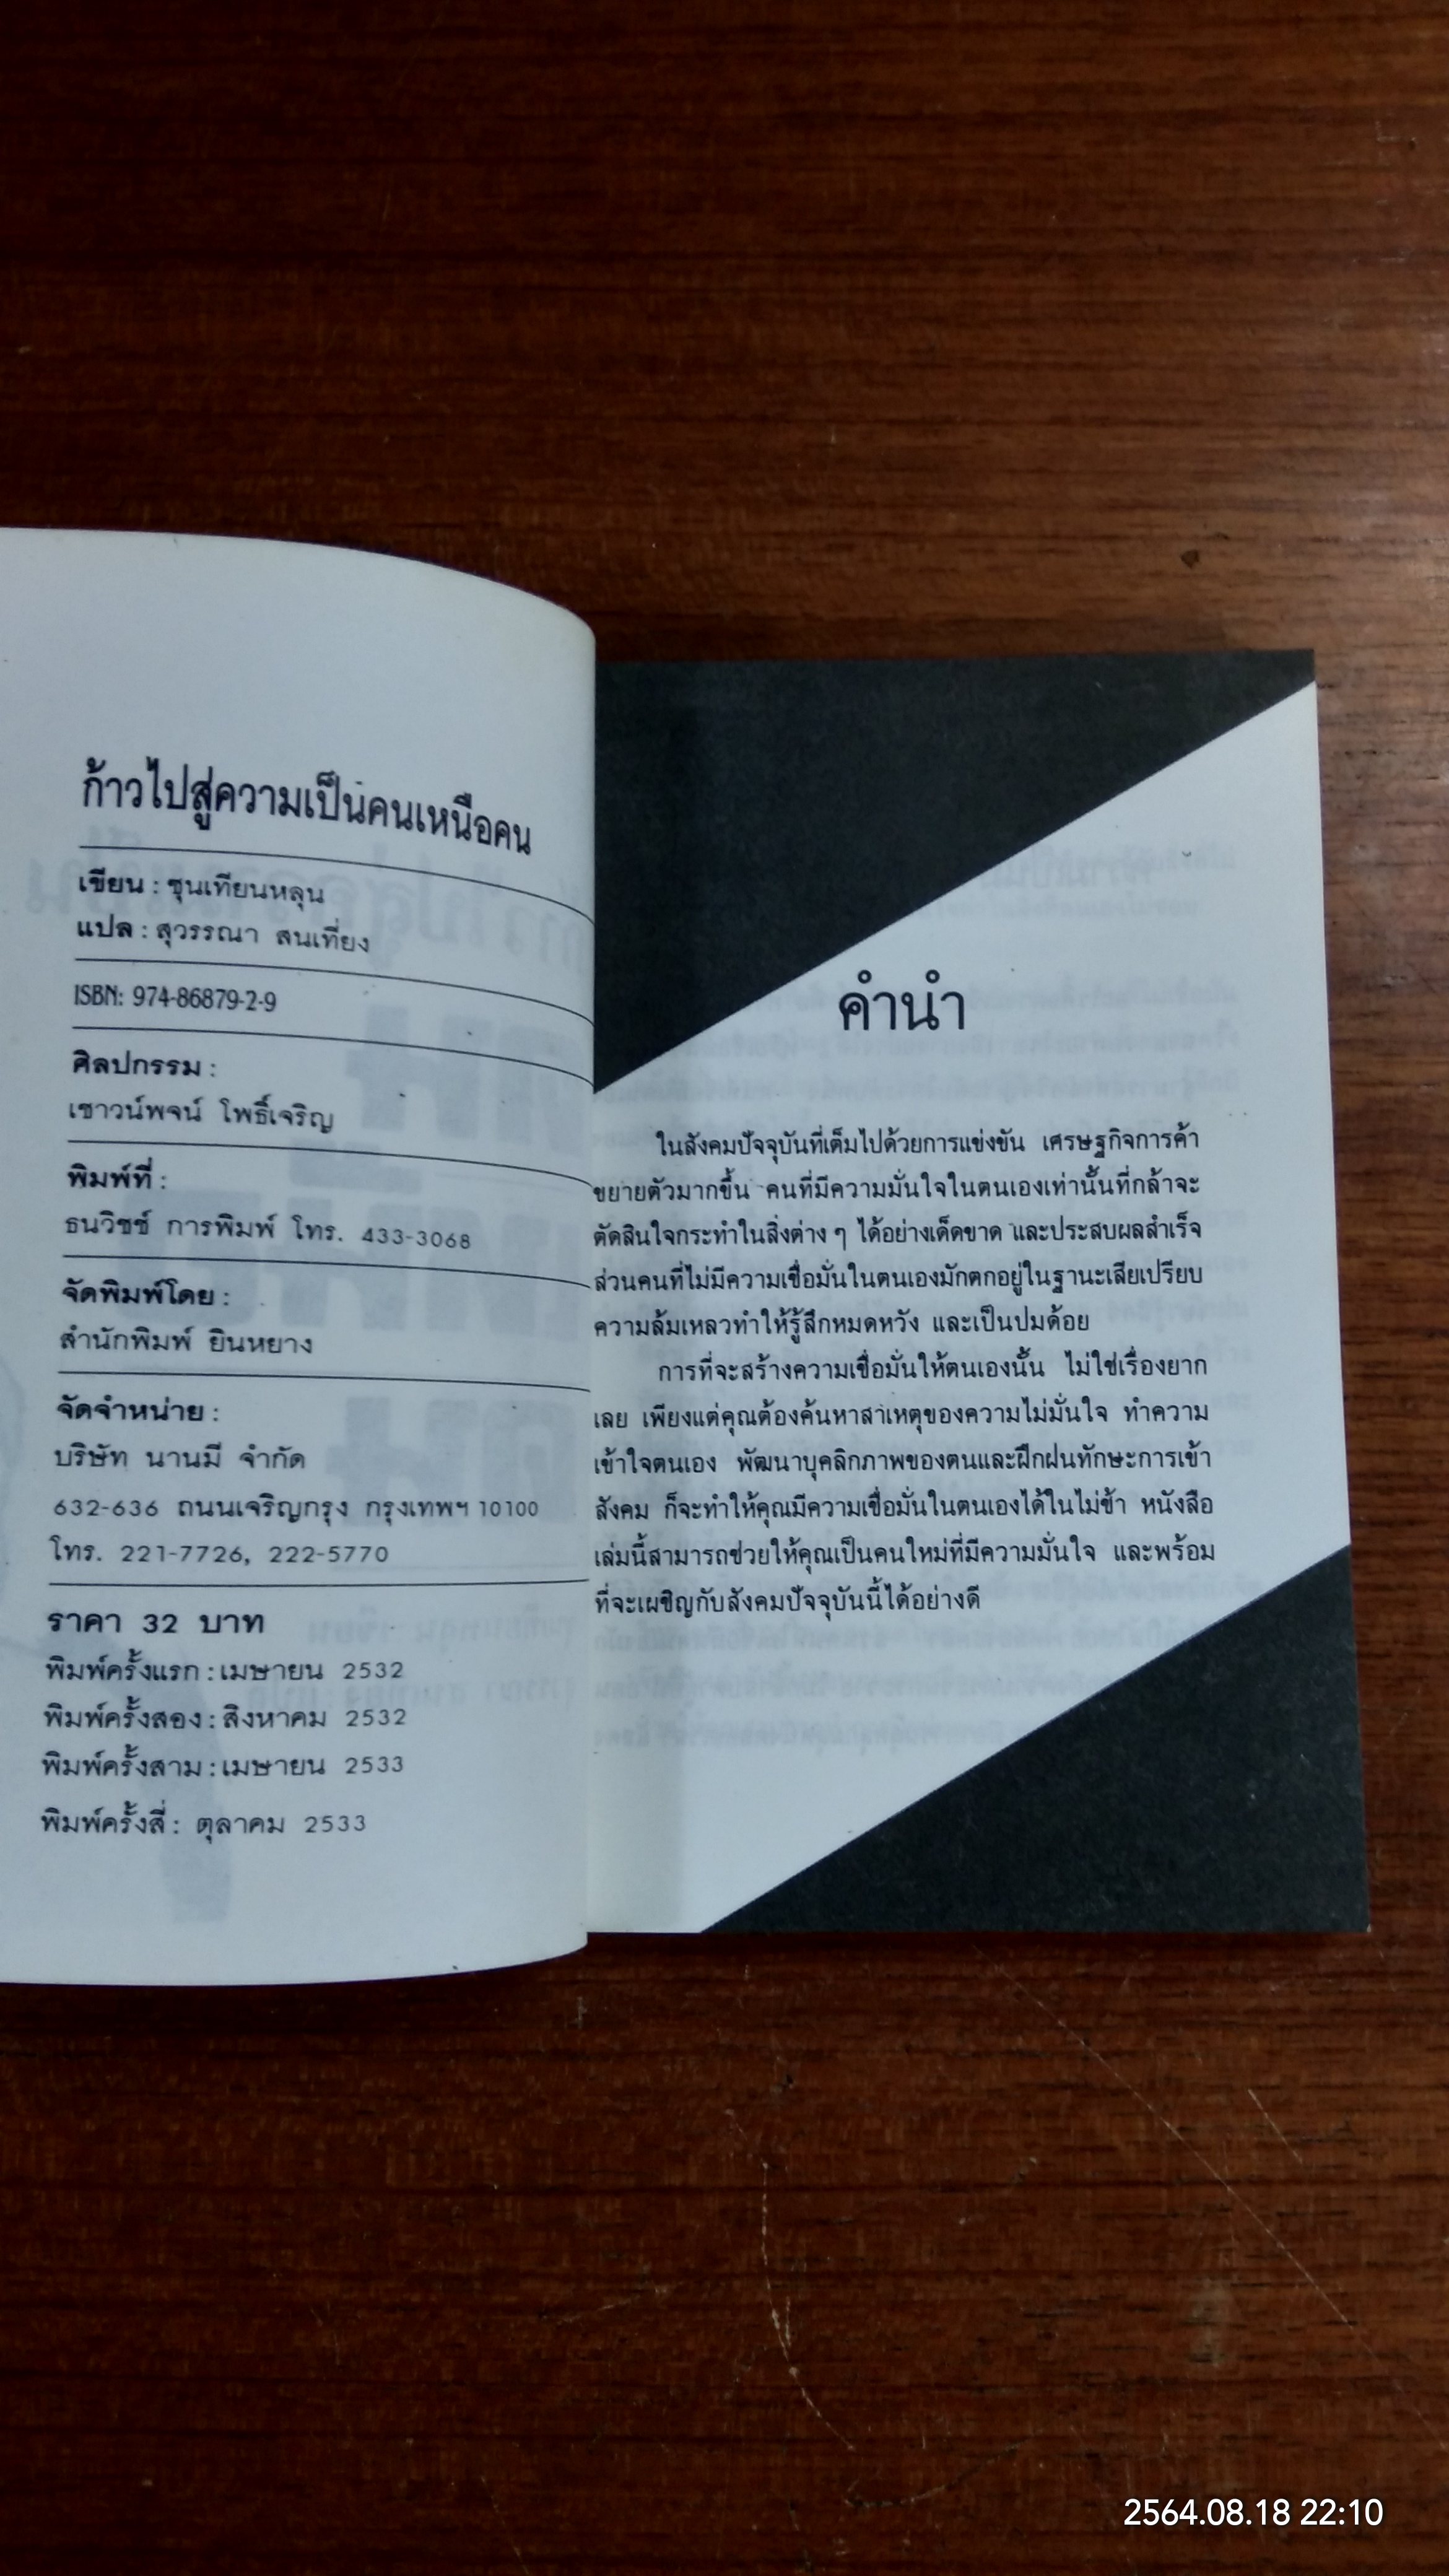 ก้าวไปสู่ความเป็นคนเหนือคน
เขียน : ชุนเทียนหลุน
แปล : สุวรรณา สนเที่ยง
ISBN: 974-86879-2-9
ศิลปกรรม :
เชาวน์พจน์ โพธิ์เจริญ
พิมพ์ที่ :
ธนวิชช์ การพิมพ์ โทร. 433-3068
จัดพิมพ์โดย :
สำนักพิมพ์ ยินหยาง
จัดจำหน่าย :
บริษัท นานมี จำกัด
632-636 ถนนเจริญกรุง กรุงเทพฯ 10100
โทร. 221-7726, 222-5770
ราคา 32 บาท
พิมพ์ครั้งแรก : เมษายน 2532
พิมพ์ครั้งสอง : สิงหาคม 2532
พิมพ์ครั้งสาม : เมษายน 2533
พิมพ์ครั้งสี่ : ตุลาคม 2533
คำนำ
ในสังคมปัจจุบันที่เต็มไปด้วยการแข่งขัน เศรษฐกิจการค้า
ขยายตัวมากขึ้น คนที่มีความมั่นใจในตนเองเท่านั้นที่กล้าจะ
ตัดสินใจกระทำในสิ่งต่าง ๆ ได้อย่างเด็ดขาด และประสบผลสำเร็จ
ส่วนคนที่ไม่มีความเชื่อมั่นในตนเองมักตกอยู่ในฐานะเสียเปรียบ
ความล้มเหลวทำให้รู้สึกหมดหวัง และเป็นปมด้อย
การที่จะสร้างความเชื่อมั่นให้ตนเองนั้น ไม่ใช่เรื่องยาก
เลย เพียงแต่คุณต้องค้นหาสาเหตุของความไม่มั่นใจ ทำความ
เข้าใจตนเอง พัฒนาบุคลิกภาพของตนและฝึกฝนทักษะการเข้า
สังคม ก็จะทำให้คุณมีความเชื่อมั่นในตนเองได้ในไม่ช้า หนังสือ
เล่มนี้สามารถช่วยให้คุณเป็นคนใหม่ที่มีความมั่นใจ และพร้อม
ที่จะเผชิญกับสังคมปัจจุบันนี้ได้อย่างดี
2564.08.18 22:10